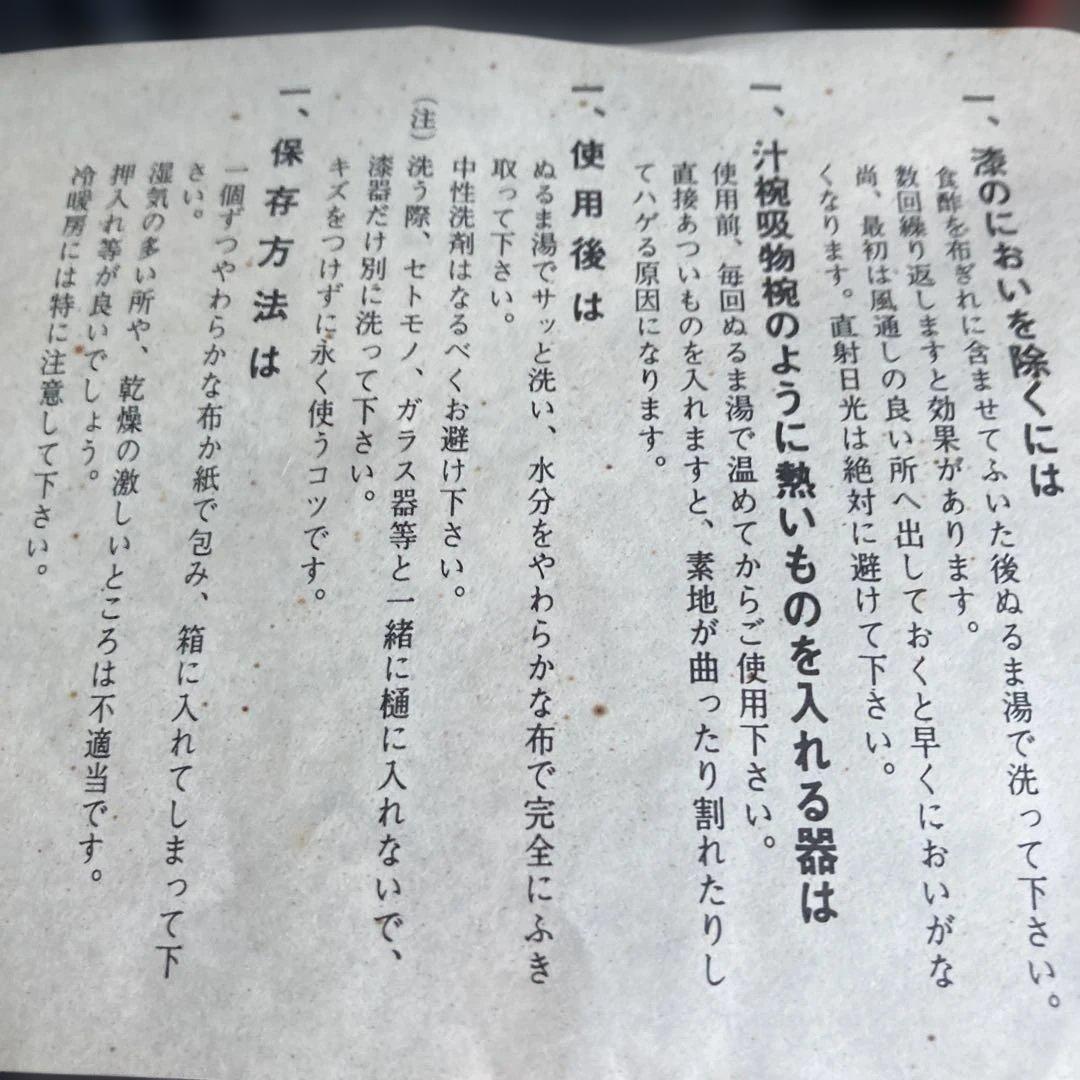 一、漆のにおいを除くには
食酢を布ぎれに含ませてふいた後ぬるま湯で洗って下さい。
数回繰り返しますと効果があります。
尚、最初は風通しの良い所へ出しておくと早くにおいがな
くなります。直射日光は絶対に避けて下さい。
一、汁椀吸物椀のように熱いものを入れる器は
使用前、毎回ぬるま湯で温めてからご使用下さい。
直接あついものを入れますと、素地が曲ったり割れたりし
てハゲる原因になります。
一、使用後は
ぬるま湯でサッと洗い、水分をやわらかな布で完全にふき
取って下さい。
中性洗剤はなるべくお避け下さい。
(注)洗う際、セトモノ、ガラス器等と一緒に樋に入れないで、
漆器だけ別に洗って下さい。
キズをつけずに永く使うコツです。
一、保存方法は
一個ずつやわらかな布か紙で包み、箱に入れてしまって下
さい。
湿気の多い所や、乾燥の激しいところは不適当です。
押入れ等が良いでしょう。
冷暖房には特に注意して下さい。